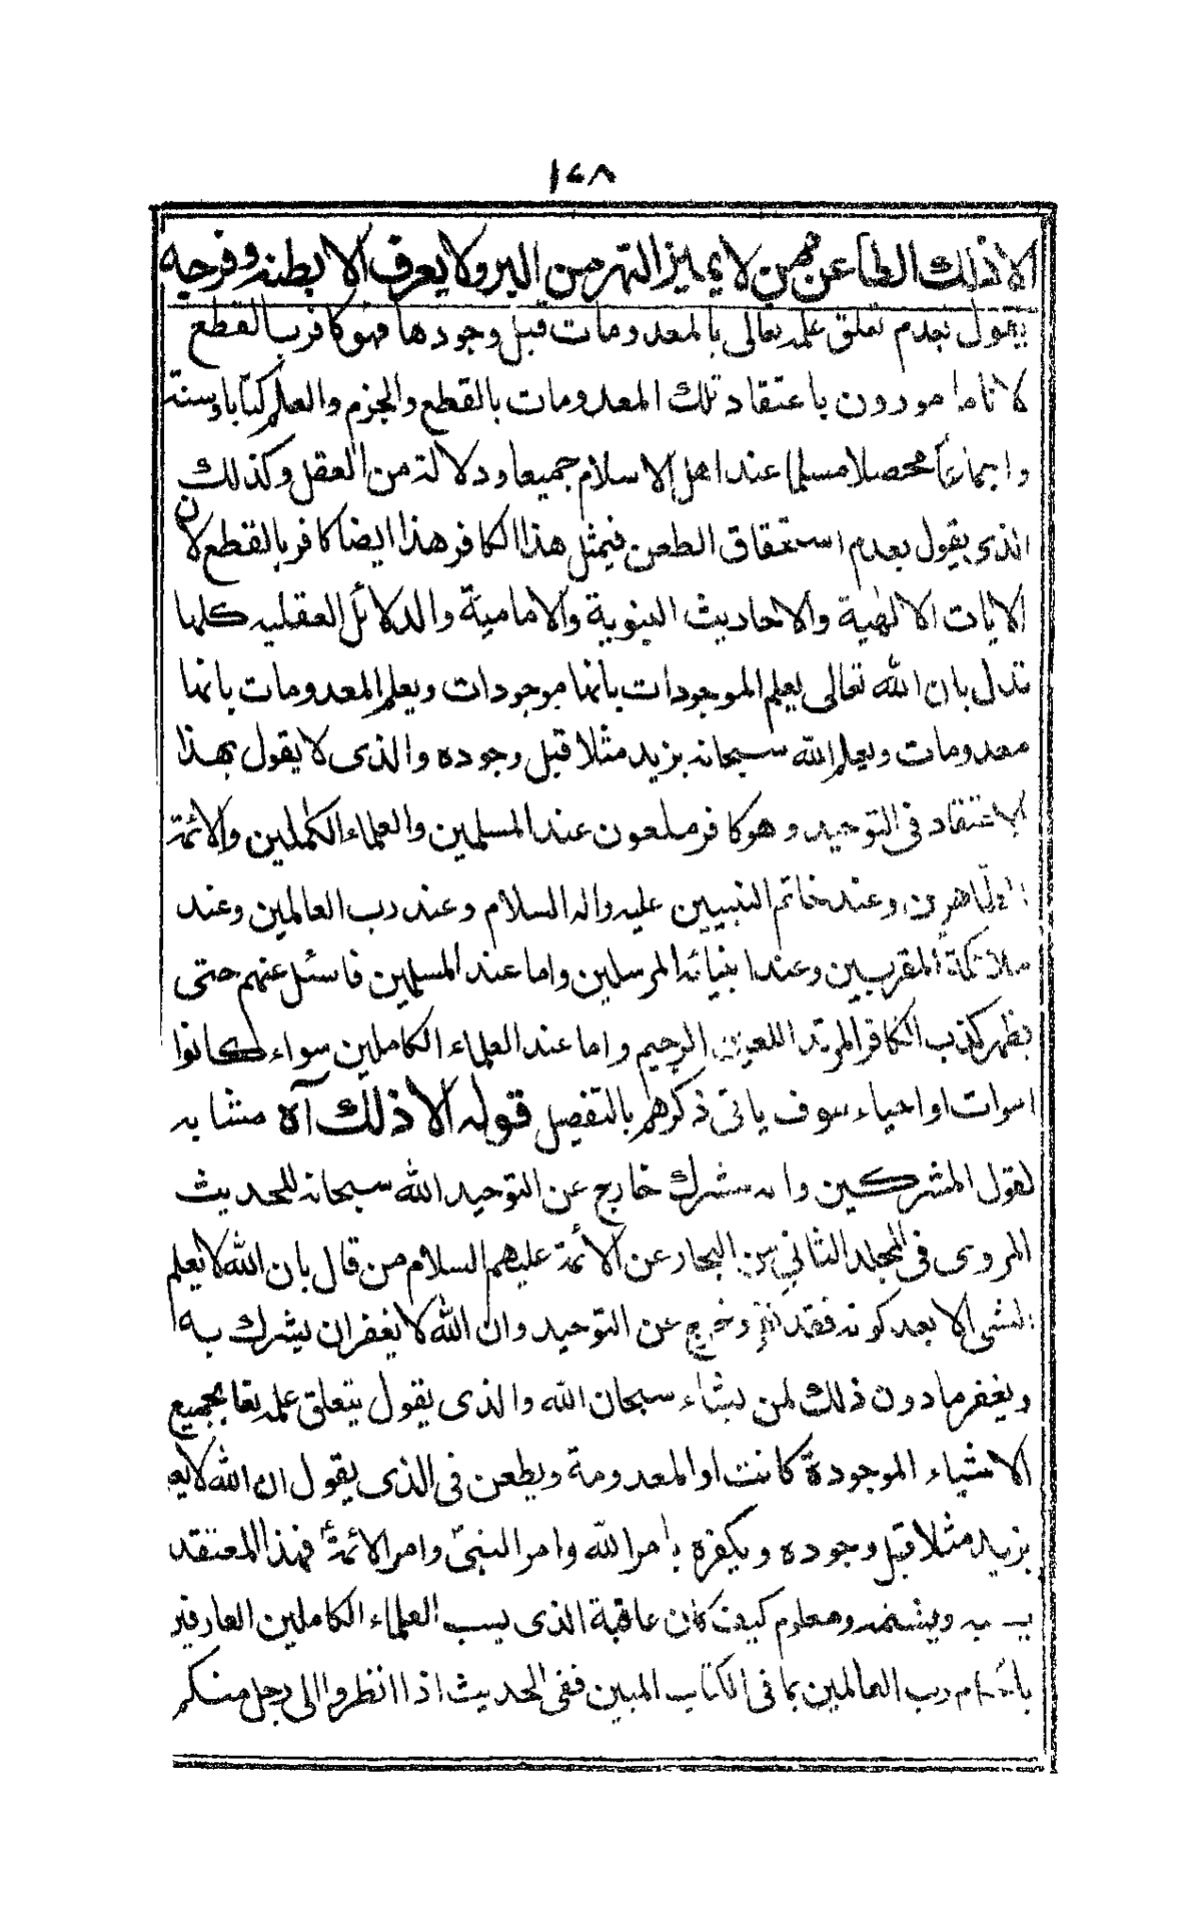 ١٤٨
الا ذلك الطاعن ممن لا يميز الهر من البر ولا يعرف الا بطنه وفرجه
يقول بعدم تعلق علمه تعالى بالمعدومات قبل وجودها فهو كافر بالقطع
لانا مامورون باعتقاد تلك المعدومات بالقطع والجزم والعلم كتابا وسنة
واجماعاً محصلا مسلما عند اهل الاسلام جميعا ودلالة من العقل وكذلك
الذى يقول بعدم استحقاق الطعن فيمثل هذا الكافر هذا ايضا كافر بالقطع لان
الايات الالهية والاحاديث النبوية والامامية والدلائل العقليه كلها
تدل بان الله تعالى يعلم الموجودات بانها موجودات ويعلم المعدومات بانها
معدومات ويعلم الله سبحانه بزيد مثلا قبل وجوده والذى لا يقول بهذا
الاعتقاد فى التوحيد وهو كافر ملعون عند المسلمين والعلماء الكاملين والائمة
الطاهرين وعند خاتم النبيين عليه واله السلام وعند رب العالمين وعند
ملائكة المقربين وعند انبيائه المرسلين واما عند المسلمين فاسئل عنهم حتى
يظهر كذب الكافر المرتد اللعين الرجيم واما عند العلماء الكاملين سواء كانوا
اموات او احياء سوف ياتى ذكرهم بالتفصيل قوله الا ذلك آه مشابه
لقول المشركين وانه مشرك خارج عن التوحيد الله سبحانه للحديث
المروى فى المجلد الثانى من البحار عن الائمة عليهم السلام من قال بان الله لا يعلم
الشى الا بعد كونه فقد وخرج عن التوحيد وان الله لا يغفر ان يشرك به
ويغفر مادون ذلك لمن يشاء سبحان الله والذى يقول يتعلق علمه تعا بجميع
الاشياء الموجودة كانت او المعدومة ويطعن فى الذى يقول ان الله لا يعلم
بزيد مثلا قبل وجوده ويكفره بامر الله وامر النبىّ وامر الائمة فهذا المعتقد
يسبه ويشتمه ومعلوم كيف كان عاقبة الذى يسب العلماء الكاملين العارفين
رب العالمين بما فى الكتاب المبين ففى الحديث اذا انظروا الى رجل منكم